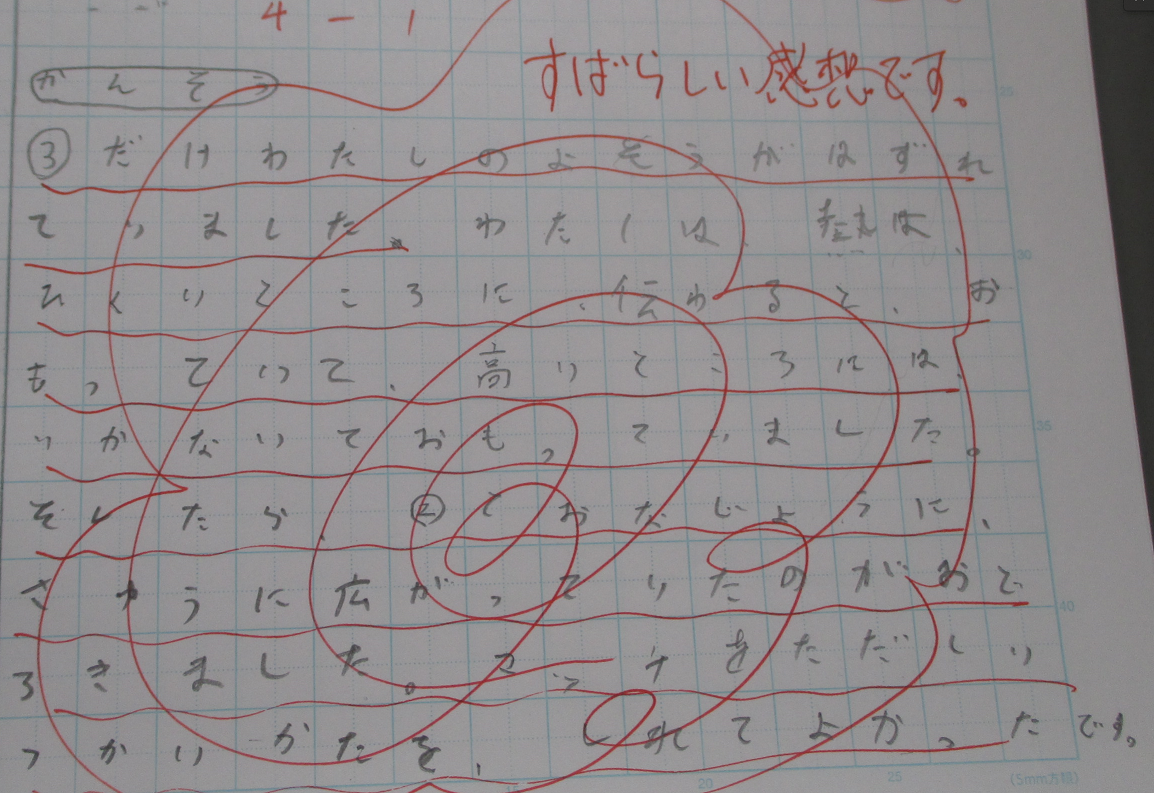 4 - 1
すばらしい感想です。
かんそう
③だけわたしのよそうがはずれ
ていました。わたしは、熱は、
ひくいところに、伝わると、お
もっていて、高いところには、
いかないておもっていました。
そしたら、②とおなじように、
さゆうに広がっていたのがおど
ろきました。をただしい
つかいかたを、しれてよかったです。
25
30
35
40
20
25
(5mm方眼)